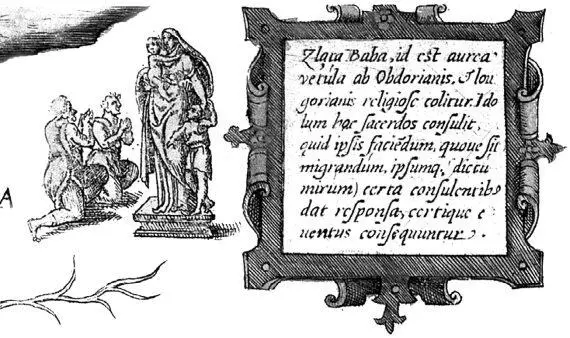 A
Zlata Baba, id est aurea
vetula ab Obdorianis, & Iou
gorianis religiose colitur. Ido
lum hoc sacerdos consulit,
quid ipsis faciēdum, quoue sit
migrandum, ipsumq; (dictu
mirum) certa consulentib9
dat responsa, certique e
uentus consequuntur.